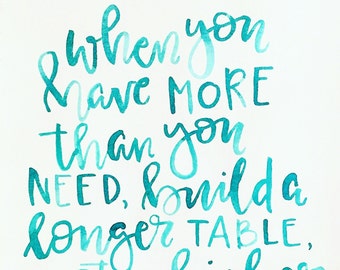 when you
have MORE
than you
NEED, build a
longer TABLE,